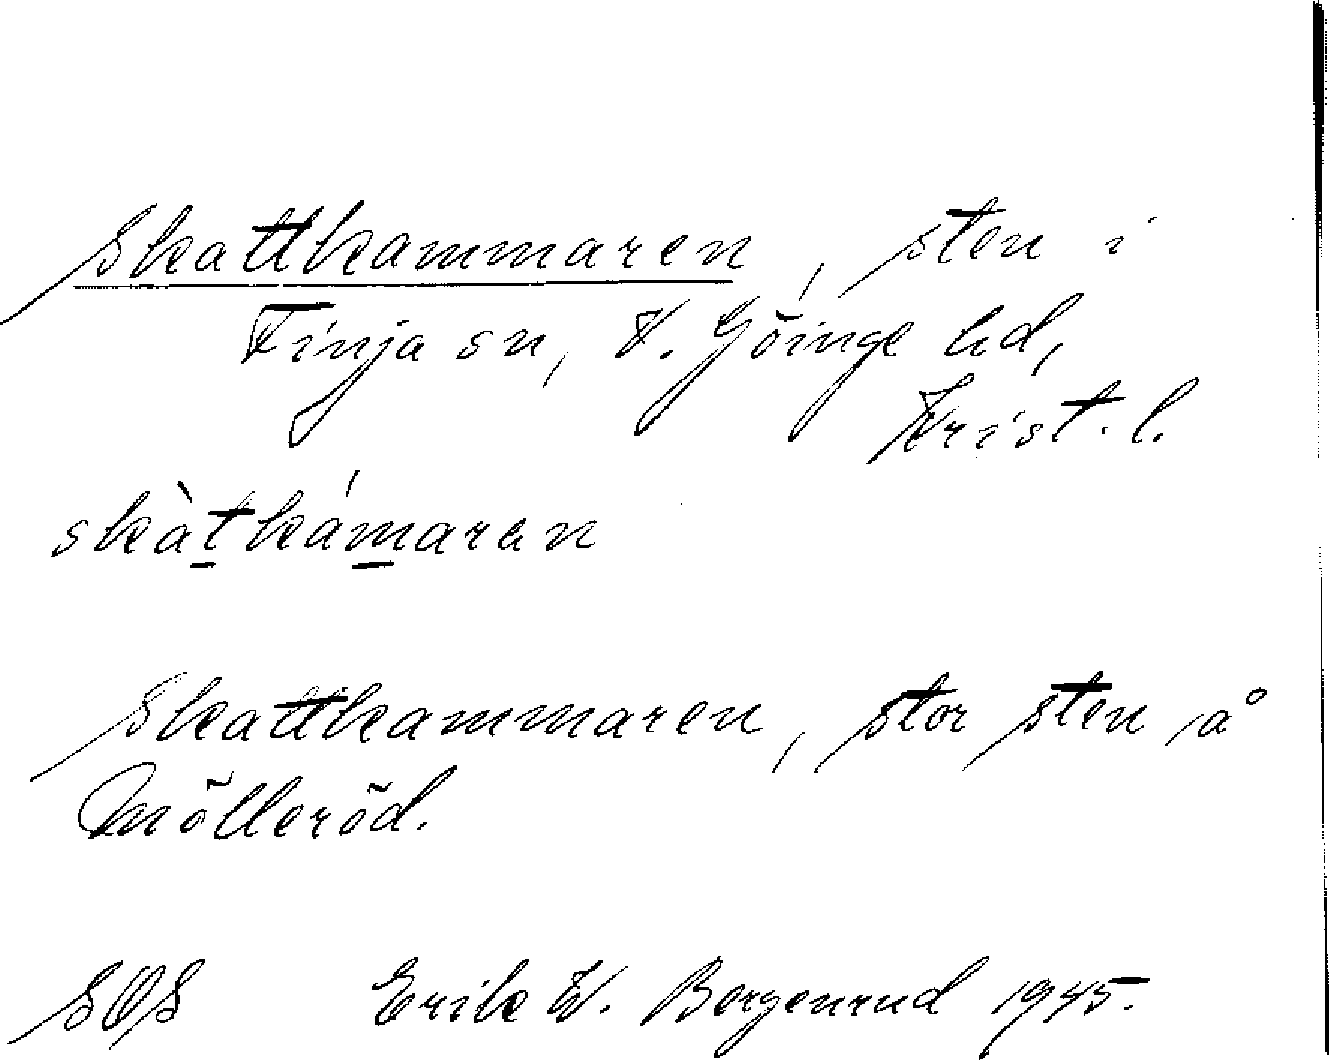 Skattkammaren, sten i
Finja sn, V. Göinge hd,
Krist. l.
skàtkámaran
Skattkammaren, stor sten å
Mölleröd.
SOS Erik W. Bergenrud 1945.